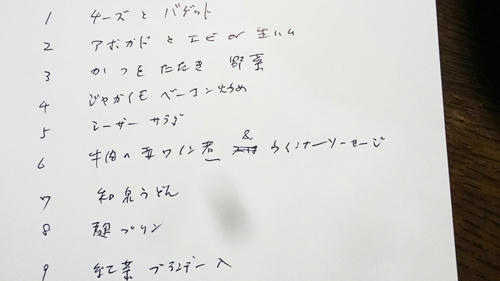 1 チーズと バゲット
2 アボガドと エビ or 生ハム
3 かつを たたき 野菜
4 じゃがイモ ベーコン炒め
5 シーザー サラダ
6 牛肉の赤ワイン煮 & ウインナーソーセージ
7 和泉うどん
8 プリン
9 紅茶 ブランデー入